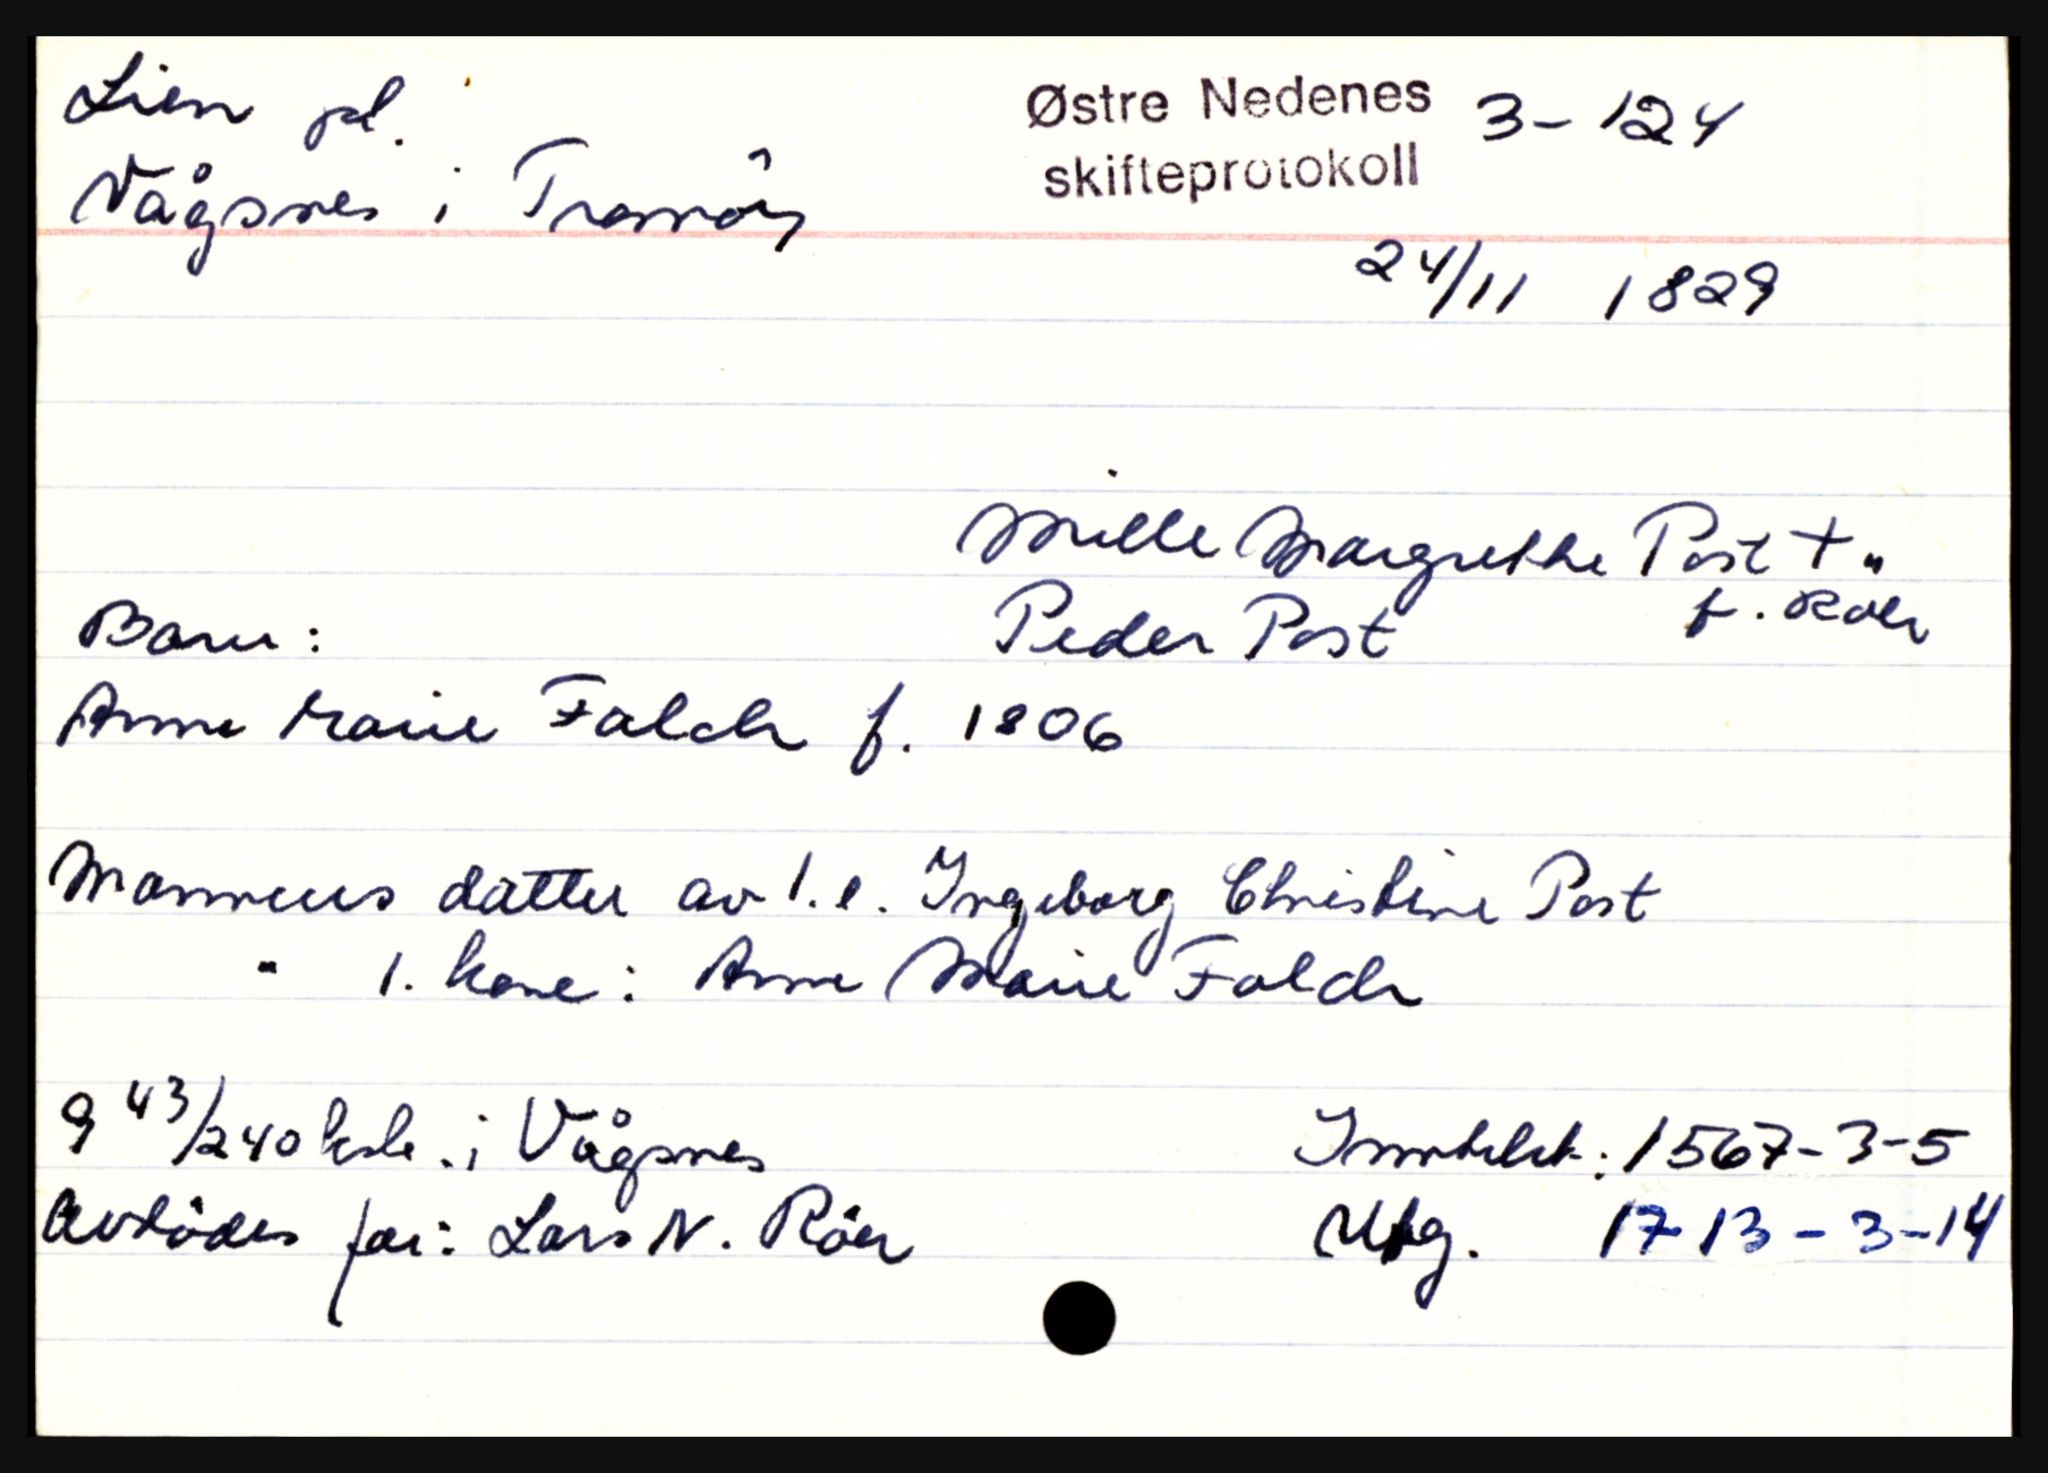 Lien pl. Østre Nedenes 3-124
Vågsnes i Tromöy skifteprotokoll
24/11 1829
Mille Margrethe Post + "
f. Röer
Barn: Peder Post
Anne Marie Falch f. 1806
Mannens datter av 1.e. Ingeborg Christine Post
" 1. kone: Anne Marie Falch
9 43/240 ksle. i Vågsnes Inntekt: 1567-3-5
Avdödes far: Lars N. Röer Utg. 1713-3-14